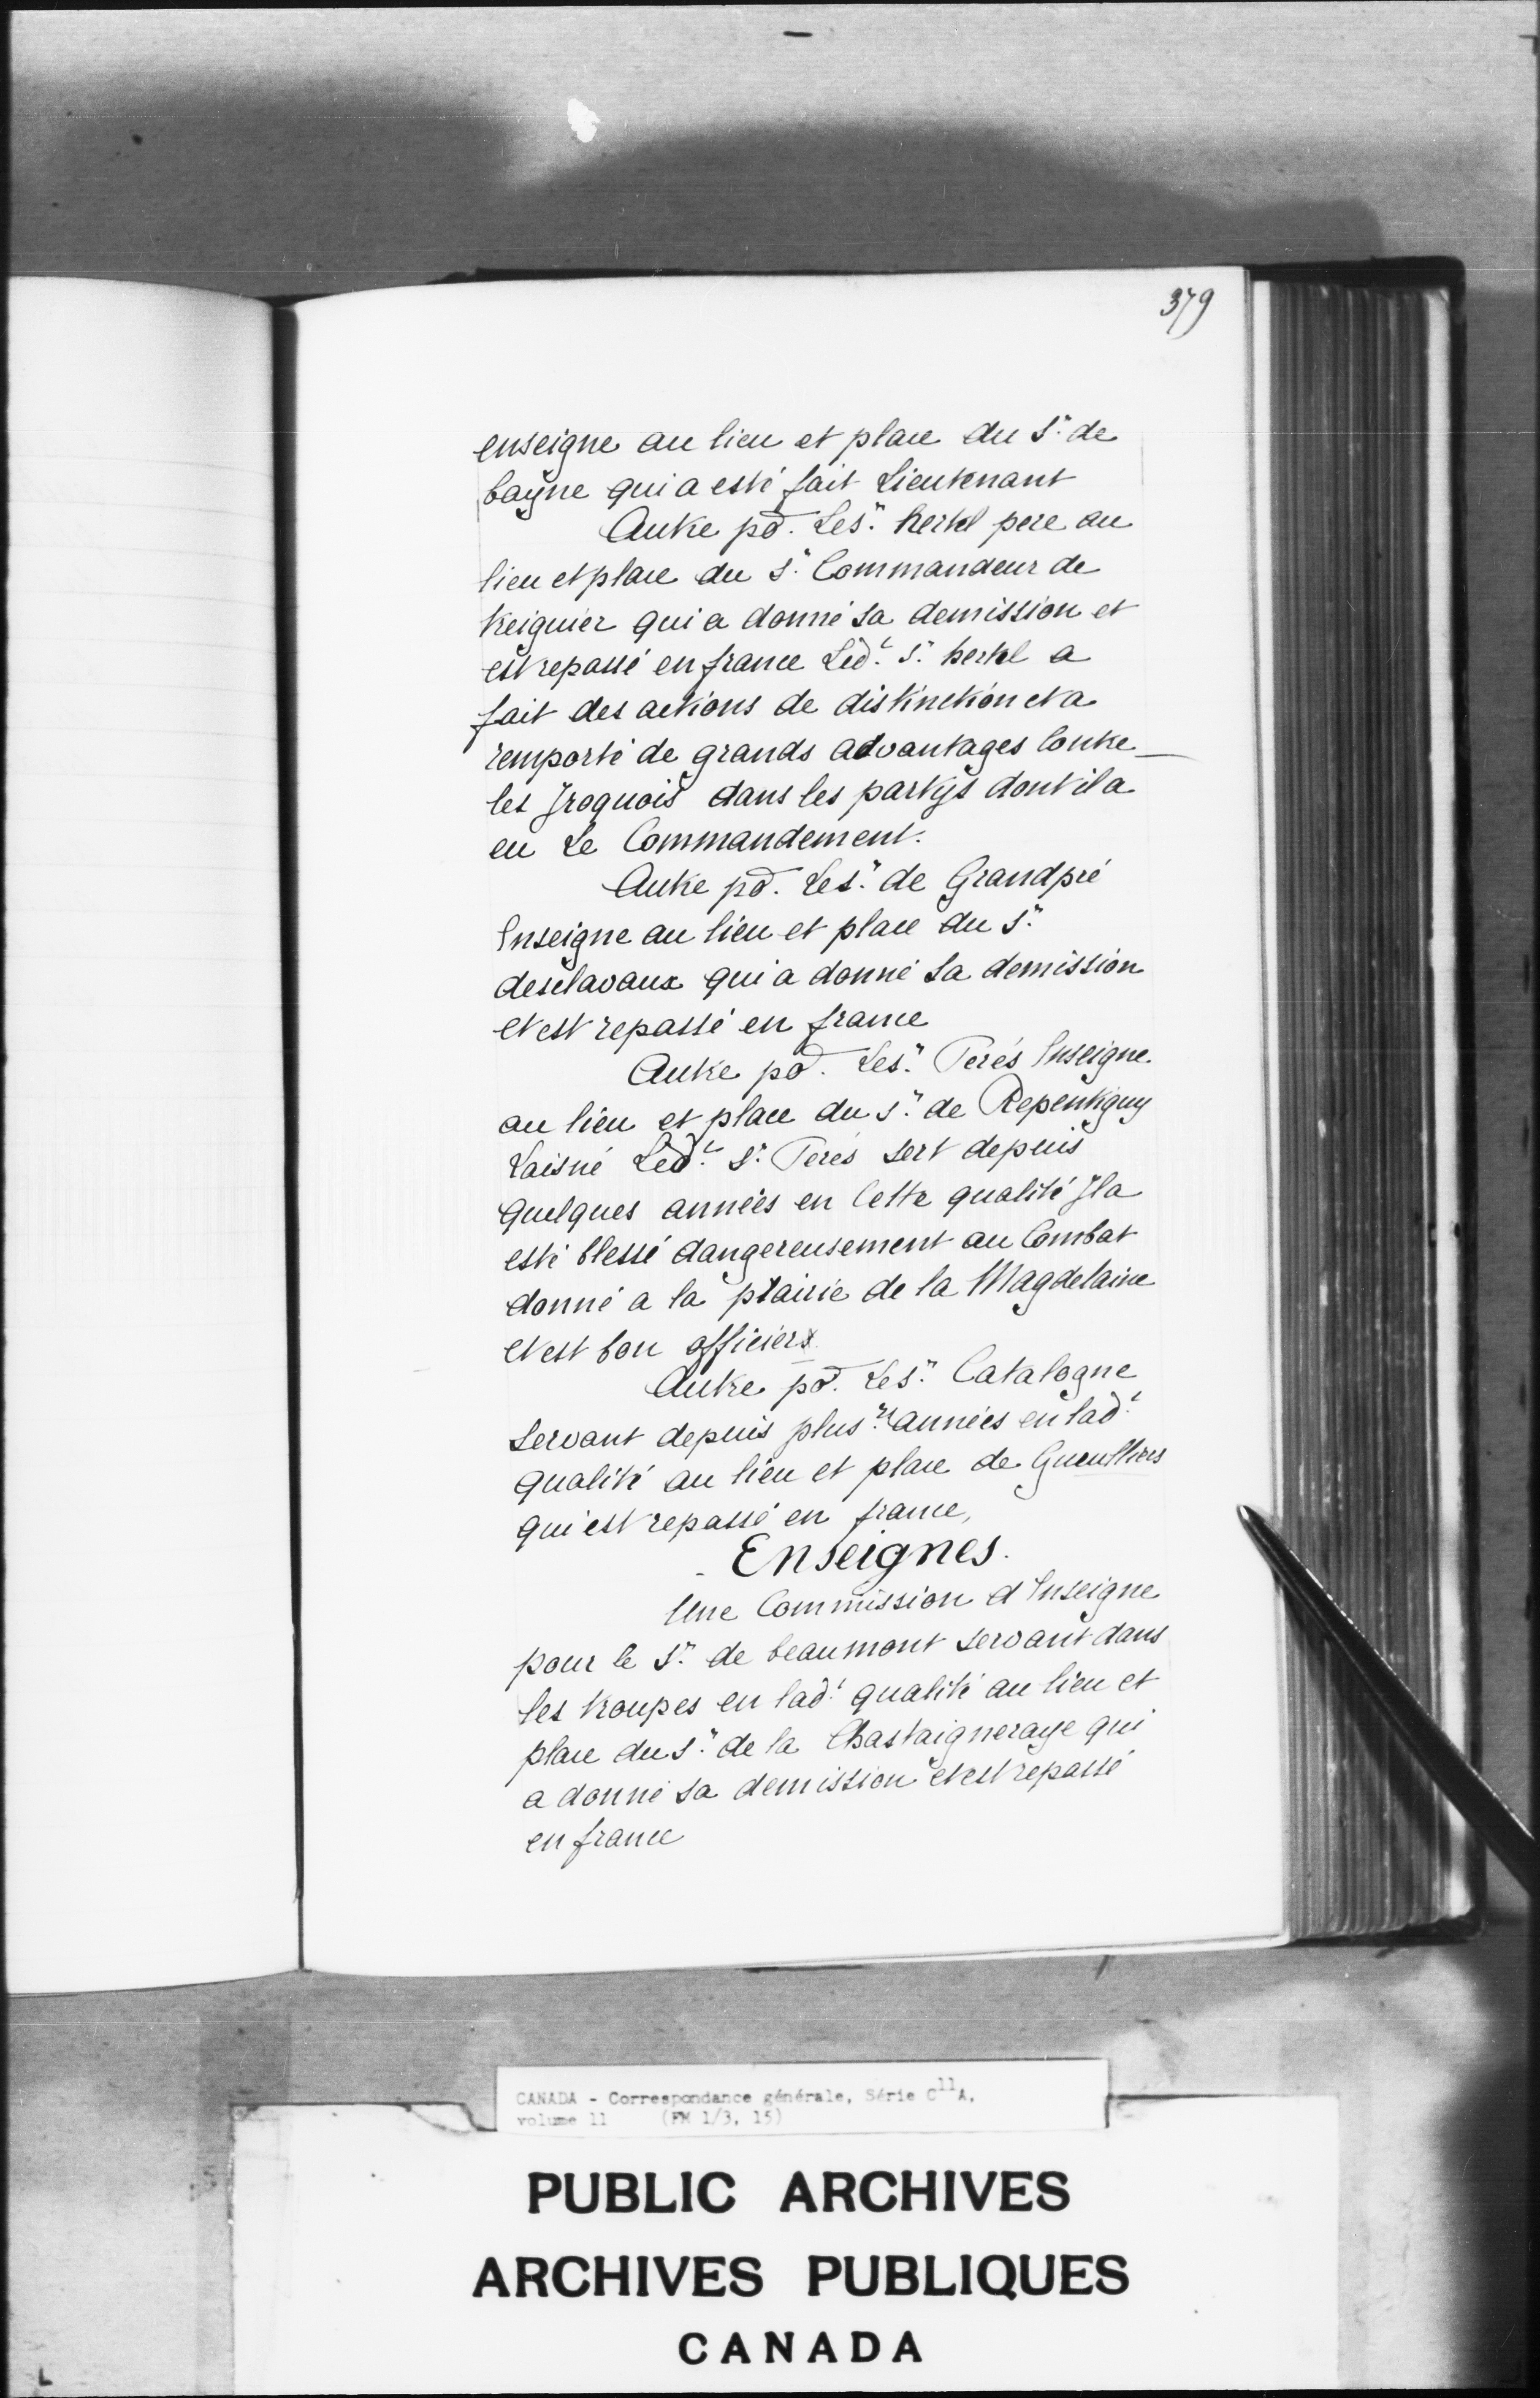 379
enseigne au lieu et place du Sr. de
bayne qui a esté fait Lieutenant
Autre pd. Le Sr. hertel pere au
lieu et place du Sr. Commandeur de
treiguier qui a donné sa demission et
est repassé en france Led.t Sr. hertel a
fait des actions de distinction et a
remporté de grands advantages Contre
les Jroquois dans les partys dont il a
eu Le Commandement.
Autre pd. Le Sr. de Grandpré
Enseigne au lieu et place du Sr.
desclavaux qui a donné sa demission
et est repassé en france
Autre pd. Le Sr. Perés Enseigne
au lieu et place du Sr. de Repentigny
Laisné Led.t Sr. Perés sert depuis
quelques années en Cette qualité Jl a
esté blessé dangereusement au Combat
donné a la prairie de la Magdelaine
et est bon officier
Autre pd. Le Sr. Catalogne
servant depuis plusrs. années en lad.t
qualité au lieu et place de
qui est repassé en france,
Enseignes.
Une Commission d'Enseigne
pour le Sr. de beaumont servant dans
les troupes en lad.t qualité au lieu et
place du Sr. de la Chastaigneraye qui
a donné sa demission et est repassé
en france
CANADA - Correspondance générale, Série C11A,
volume 11 (FM 1/3, 15)
PUBLIC ARCHIVES
ARCHIVES PUBLIQUES
CANADA
L